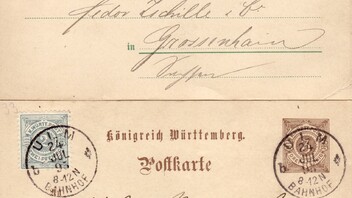 Fedor Zschille & Co
in Grossenhain
Sachsen
Königreich Württemberg.
Postkarte
ULM
24
JUL
8-12N
BAHNHOF
ULM
24
JUL
8-12N
BAHNHOF